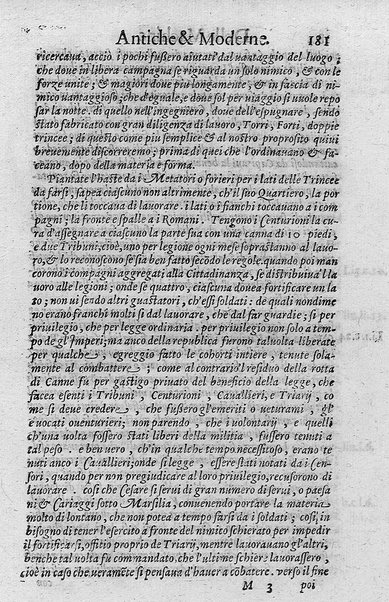 Antiche & Moderne. 181
ricercaua, acciò i pochi fussero aiutati dal uantaggio del luogo;
che doue in libera campagna se riguarda un solo nimico, & con le
forze unite; & magiori doue piu longamente, & in fascia di ni-
mico uantaggioso; che d'eguale, e doue sol per uiaggio si uuole repo
sar la notte. di quello nell'ingegniero, doue dell'espugnare, sendo
stato fabricato con gran diligenza di lauoro, Torri, Forti, doppie
trincee; di questo come piu semplice & al nostro proposito quiui
breuemente discorreremo; prima di quei che l'ordinauano & fa-
ceano, dopo della materia e forma.
Piantate l'haste da i Metatori o forieri per i lati delle Trincee
da farsi, sapea ciascuno non altrimente, ch'il suo Quartiero, la por
tione, che li toccaua di lauorare. i lati o i fianchi toccauano a i com
pagni; la fronte e spalle a i Romani. Tengono i Centurioni la cu-
ra d'assegnare a ciascuno la parte sua con una canna di 10 piedi,
e due Tribuni; cioè, uno per legione ogni mese soprastanno al lauo-
ro, & lo reconoscono se sia ben fatto secondo le regole. quando poi man
corono i compagni aggregati alla Cittadinanza, se distribuiua'l la
uoro alle legioni; onde se quattro, ciascuna doue a fortificare un la
to; non ui sendo altri guastatori, ch'essi soldati: de quali nondime
no erano franchi molti si dal lauorare, che dal far guardie; si per
priuilegio, che per legge ordinaria. per priuilegio non solo a tem-
po de gl'Imperi; ma anco della republica fierono tal uolta liberate
per qualche, egreggio fatto le cohorti intiere, tenute sola-
mente al combattere; come al contrario'l residuo della rotta
di Canne fù per gastigo priuato del beneficio della legge, che
facea esenti i Tribuni, Centurioni, Cauallieri, e Triarij, co
me si deue credere, che fussero gl'emeriti o ueturami, gl'
e uocati ouenturieri; non parendo, che i uolontarij, e quelli
ch'una uolta fossero stati liberi della militia, fussero tenuti a
tal peso. e ben uero, ch'in alcun tempo necessitoso, erano te
nuti anco i Cauallieri; onde si legge, essere stati notati da i Cen-
sori, quando per non pregiudicare al loro priuilegio, recusorono di
lauorare. cosi che Cesare si serui di gran numero di serui, o paesa
ni & Cariaggi sotto Marsilia, conuenendo portare la materia
molto di lontano, che non potea a tempo farsi da i soldati; così, in
bisogno di tener l'esercito a fronte del nimito schierato per impedir
il fortificarsi, offitio proprio de Triarij, mentre lauorauano gl'altri,
benche tal uolta fù commandato, che l'ultime schiere lauorassero,
cioè in caso che ueramete si pensaua d'hauer a cobatere. verso il fine
M 3 poi